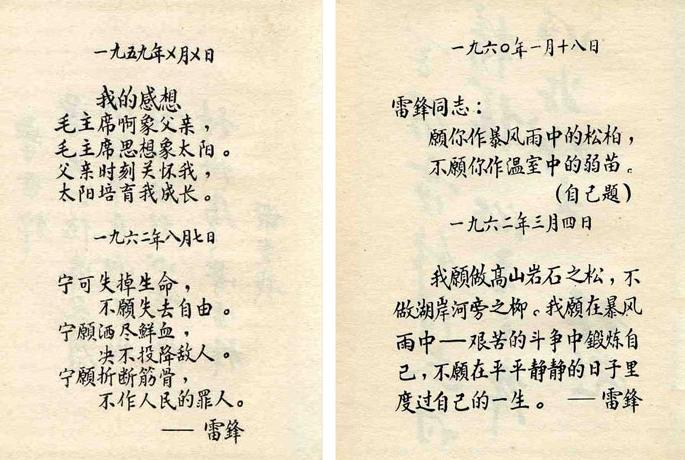 一九五九年乂月乂日
我的感想
毛主席啊象父亲，
毛主席思想象太阳。
父亲时刻关怀我，
太阳培育我成长。
一九六二年八月七日
宁可失掉生命，
不愿失去自由。
宁愿洒尽鲜血，
决不投降敌人。
宁愿折断筋骨，
不作人民的罪人。
—— 雷鋒
一九六〇年一月十八日
雷鋒同志：
願你作暴风雨中的松柏，
不願你作温室中的弱苗。
(自己题)
一九六二年三月四日
我愿做高山岩石之松，不
做湖岸河旁之柳。我愿在暴风
雨中——艰苦的斗争中鍛炼自
己，不愿在平平静静的日子里
度过自己的一生。 —— 雷鋒